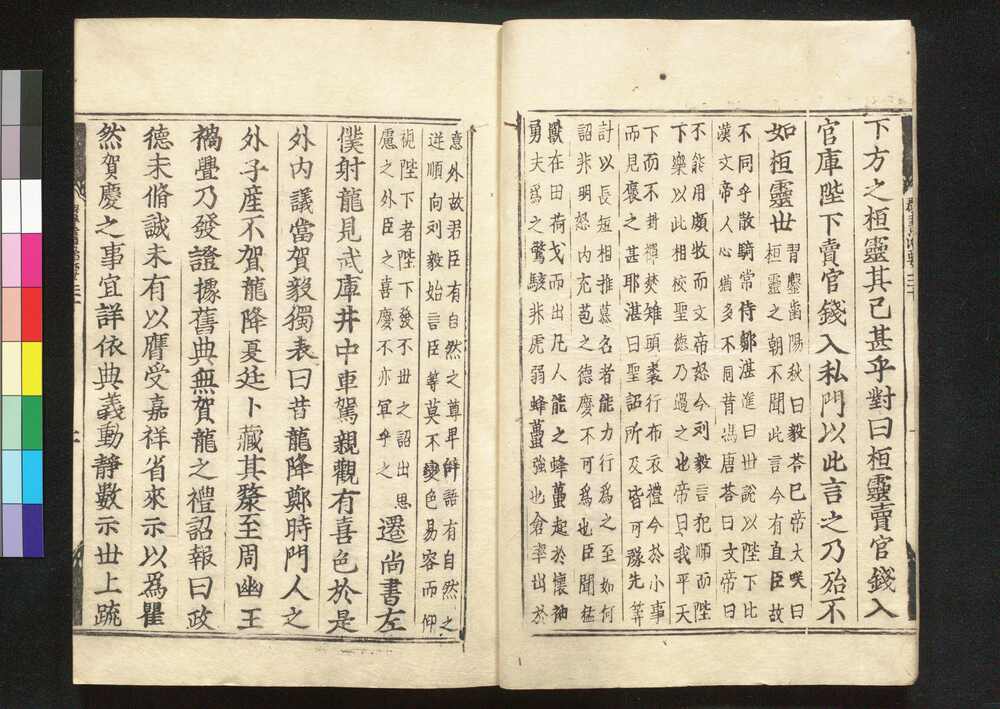 下方之桓靈其已甚乎對曰桓靈賣官錢入
官庫陛下賣官錢入私門以此言之乃殆不
如桓靈世
習鑿齒陽秋曰毅荅已帝大咲曰
桓靈之朝不聞此言今有直臣故
不同乎散騎常侍鄒湛進曰世說以陛下比
漢文帝人心猶多不同昔馮唐荅曰文帝曰
不能用頗牧而文帝怒今刘毅言犯順而陛
下樂以此相校聖德乃過之也帝曰我平天
下而不封禪焚雉頭裘行布衣禮今於小事
而見褒之甚耶湛曰聖詔所及皆可豫先筭
計以長短相推慕名者能力行為之至如何
詔非明恕内充苞之德度不可為也臣聞猛
獸在田荷戈而出凡人能之蜂蠆起於懷袖
勇夫為之驚駭非虎弱蜂蠆強也倉率出於
意外故君臣有自然之尊卑辭語有自然之
逆順向刘毅始言臣等莫不變色易容而仰
視陛下者陛下發不世之詔出思
慮之外臣之喜慶不亦冝乎之
遷尚書左
僕射龍見武庫井中車駕親觀有喜色於是
外内議當賀毅獨表曰昔龍降鄭時門人之
外子產不賀龍降夏廷卜藏其漦至周幽王
禍舋乃發證據舊典無賀龍之禮詔報曰政
德未脩誠未有以膺受嘉祥省來示以為瞿
然賀慶之事宜詳依典義動靜數示世上疏